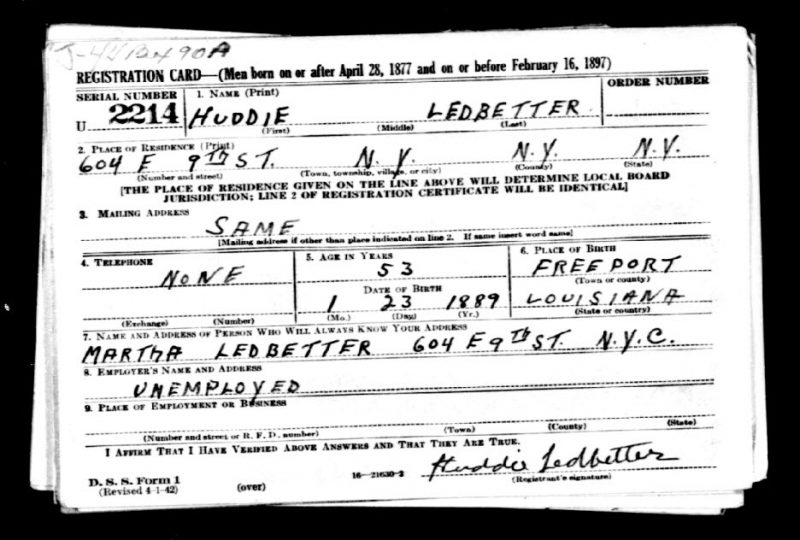 J-44 B 490A
REGISTRATION CARD—(Men born on or after April 28, 1877 and on or before February 16, 1897)
SERIAL NUMBER
1. NAME (Print)
ORDER NUMBER
U 2214
HUDDIE LEDBETTER
(First) (Middle) (Last)
2. PLACE OF RESIDENCE (Print)
604 E 9TH ST. N.Y. N.Y. N.Y.
(Number and street) (Town, township, village, or city) (County) (State)
[THE PLACE OF RESIDENCE GIVEN ON THE LINE ABOVE WILL DETERMINE LOCAL BOARD
JURISDICTION; LINE 2 OF REGISTRATION CERTIFICATE WILL BE IDENTICAL]
3. MAILING ADDRESS
SAME
[Mailing address if other than place indicated on line 2. If same insert word same]
4. TELEPHONE
NONE
(Exchange) (Number)
5. AGE IN YEARS
53
DATE OF BIRTH
1 23 1889
(Mo.) (Day) (Yr.)
6. PLACE OF BIRTH
FREEPORT
(Town or county)
LOUISIANA
(State or country)
7. NAME AND ADDRESS OF PERSON WHO WILL ALWAYS KNOW YOUR ADDRESS
MARTHA LEDBETTER 604 E 9TH ST. N.Y.C.
8. EMPLOYER'S NAME AND ADDRESS
UNEMPLOYED
9. PLACE OF EMPLOYMENT OR BUSINESS
(Number and street or R. F. D. number) (Town) (County) (State)
I AFFIRM THAT I HAVE VERIFIED ABOVE ANSWERS AND THAT THEY ARE TRUE.
Huddie Ledbetter
D. S. S. Form 1
(Revised 4-1-42) (over) 16—21630-2 (Registrant's signature)